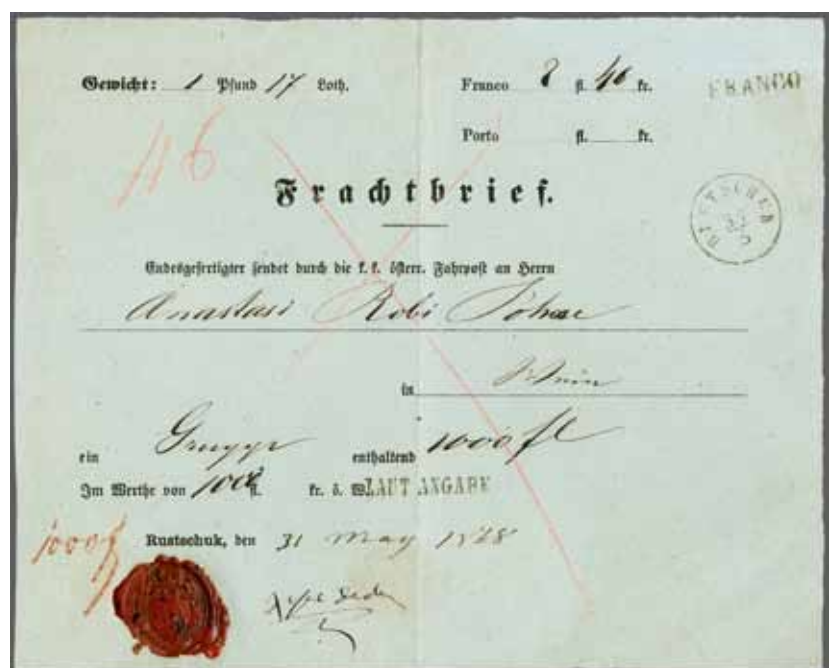 Gewicht: 1 Pfund 17 Loth. Franco 8 fl. 46 kr. FRANCO
Porto fl. kr.
116
Frachtbrief.
RUSTSCHUK
Endesgefertigter sendet durch die k. k. österr. Fahrpost an Herrn
Anastasi Robi Söhne
in Wien
ein Gruppo enthaltend 1000 fl
Im Werthe von 1000 fl. kr. ö. W. LAUT ANGABE
1000 f
Rustschuk, den 31 May 1878